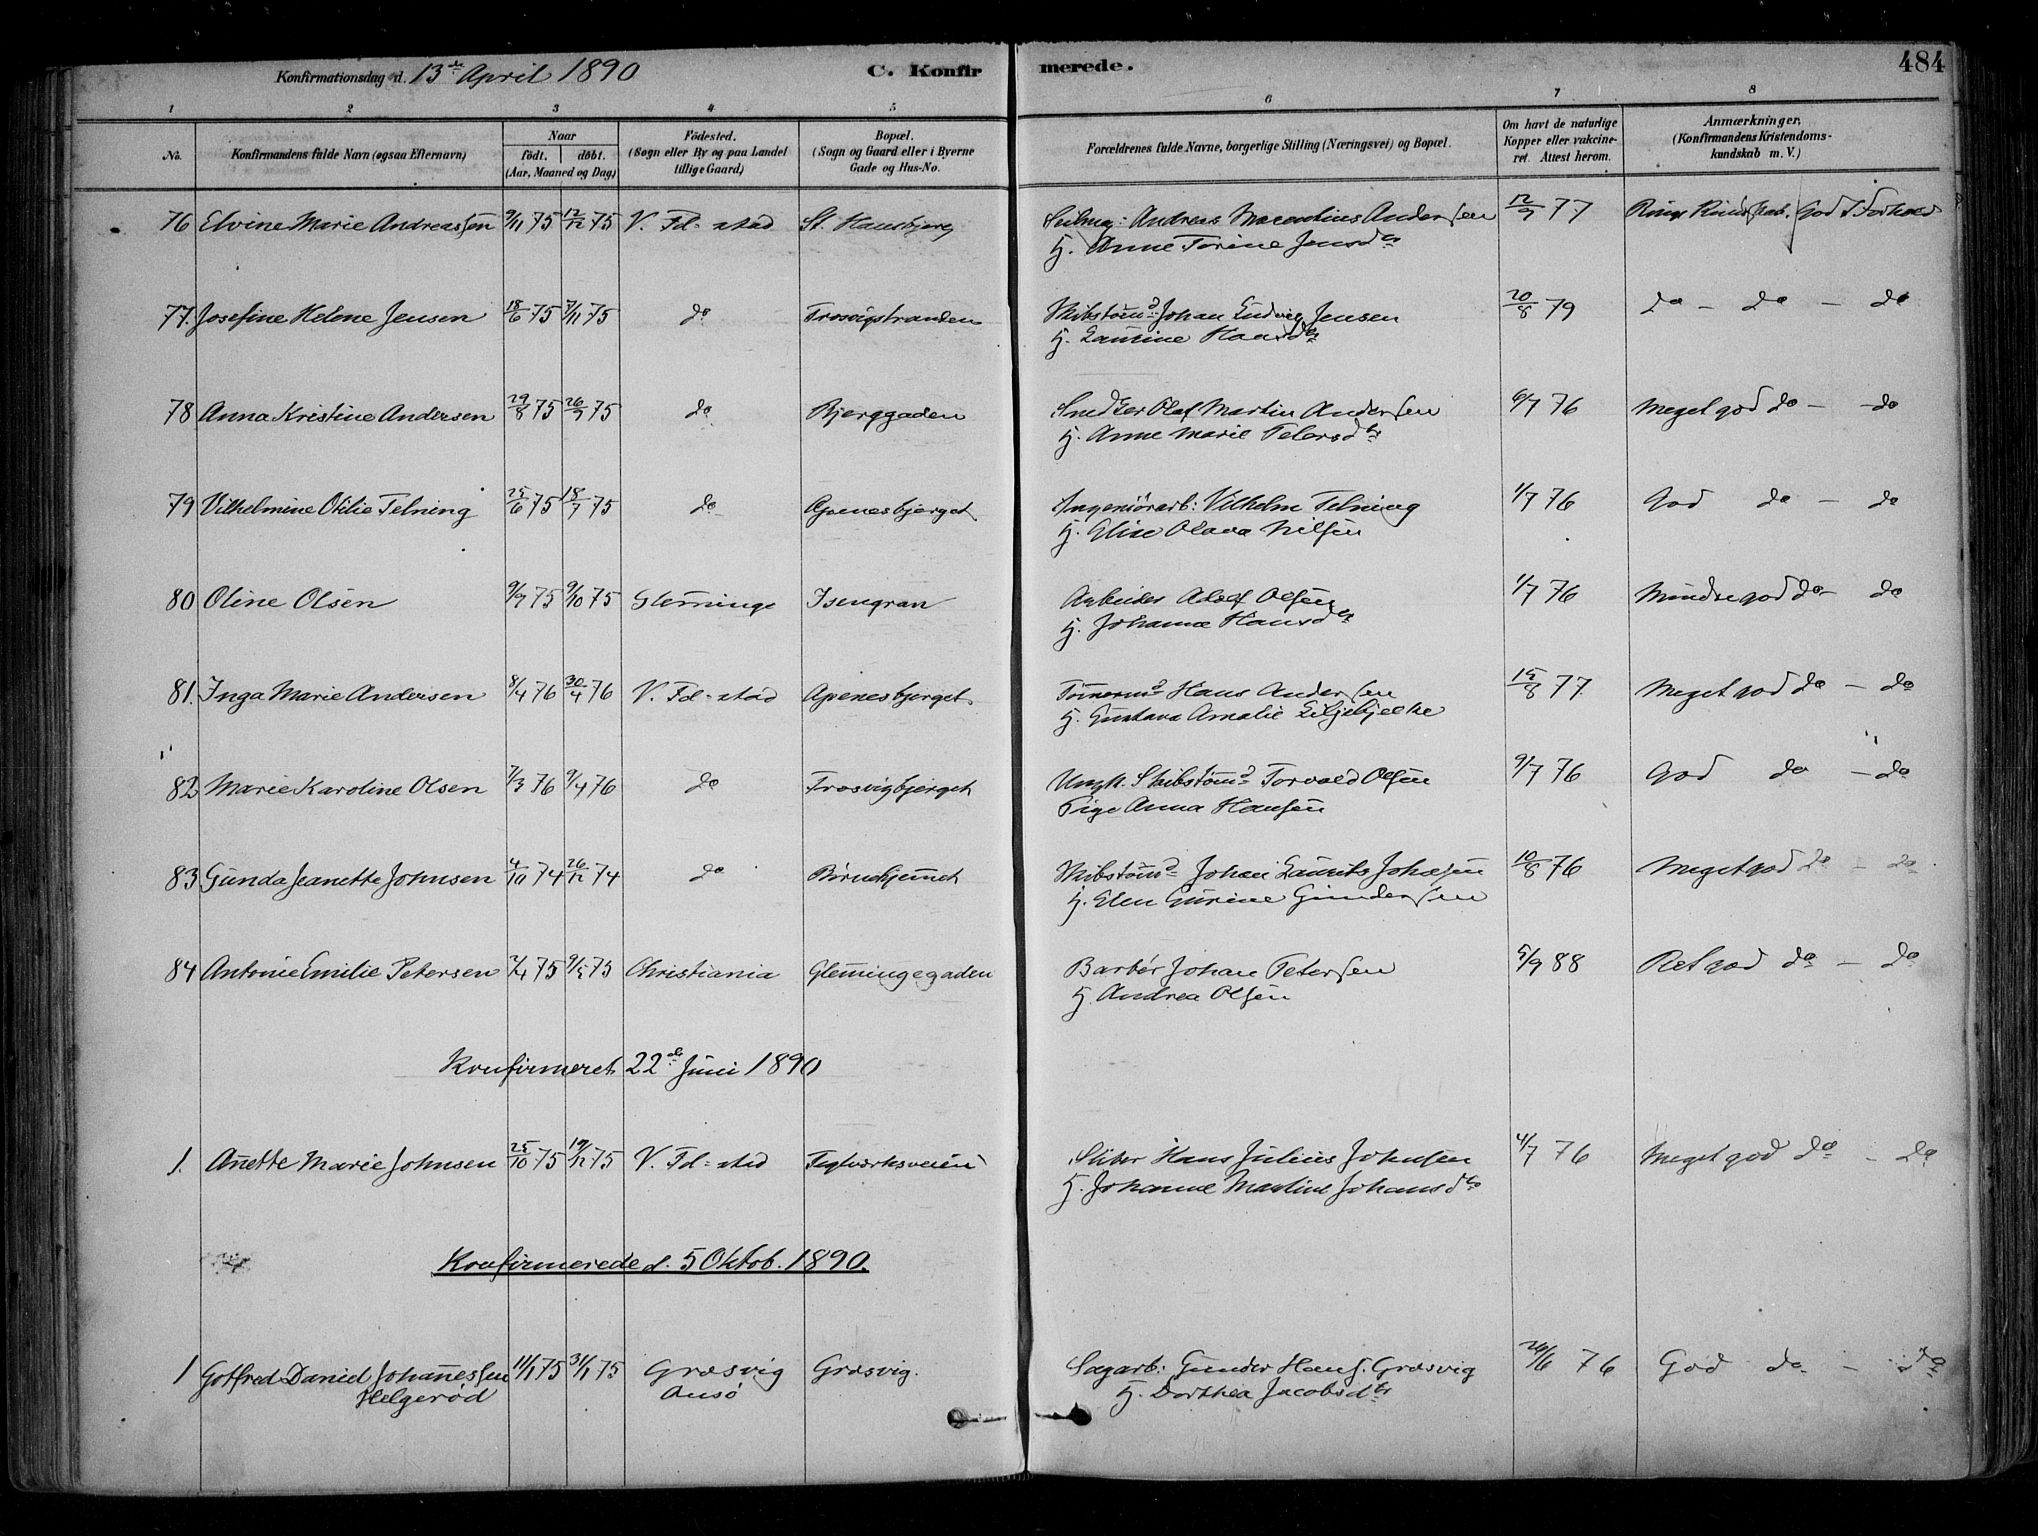 Konfirmationsdag d. 13de April 1890 C. Konfirmerede. 484
1 2 3 4 5 6 7 8
No. Konfirmandens fulde Navn (ogsaa Efternavn) Naar født. døbt. (Aar, Maaned og Dag) Fødested. (Sogn eller By og paa Landet tillige Gaard) Bopæl. (Sogn og Gaard eller i Byerne Gade og Hus-No. Forældrenes fulde Navne, borgerlige Stilling (Næringsvei) og Bopæl. Om havt de naturlige Kopper eller vakcineret. Attest herom. Anmærkninger. (Konfirmandens Kristendomskundskab m. V.)
76 Elvine Marie Andreassen 9/11 75 12/12 75 V. Fd-stad St. Hansbjerg Seilmag: Andreas Andersen 12/9 77 God Forhold
H. Anne Torine Jensdtr
77. Josefine Helene Jensen 18/6 75 7/11 75 do Trosvigstranden Skibstømd Johan Ludvig Jensen 20/8 79 do - do - do
H. Laurine Hansdtr
78 Anna Kristine Andersen 29/8 75 26/9 75 do Bjerggaden Smed Olaf Martin Andersen 6/7 76 Meget god do - do
H. Anne Marie Petersdtr
79 Vilhelmine Otilie Telning 25/6 75 18/7 75 do Apenesbjerget Ingeniörarb: Vilhelm Telning 1/7 76 God do - do
H. Elise Olava Nilsen
80 Oline Olsen 9/9 75 9/10 75 Glemminge Isengran Arbeider Adolf Olsen 1/7 76 Mindre god do - do
H. Johanne Hansdtr
81. Inga Marie Andersen 8/4 76 30/4 76 V. Fd-stad Apenesbjerget Tömermd Hans Andersen 15/8 77 Meget god do - do
H. Gustava Amalie Liljebjelke
82 Marie Karoline Olsen 7/3 76 9/4 76 do Trosvigbjerget Ungk. Skibstömd Torvald Olsen 9/7 76 God do - do
Pige Anna Hansen
83 Gunda Jeanette Johnsen 4/10 74 26/12 74 do Børnehjemmet Skibstömd Johan Laurits Johnsen 10/8 76 Meget god do - do
H. Elen Gurine Gundersen
84 Antonie Emilie Petersen 2/4 75 9/5 75 Christiania Glemmingegaden Barbér Johan Petersen 5/9 88 Ret god do - do
H. Andrea Olsen
Konfirmeret 22de Juni 1890
1. Anette Marie Johnsen 25/10 75 19/12 75 V. Fd-stad Teglverksveien Sliber Hans Julius Johnsen 4/7 76 Meget god do - do
H. Johanne Martine Johansdtr
Konfirmerede d. 5 Oktob. 1890.
1 Gotfred Daniel Johannessen 11/1 75 31/1 75 Græsvig Græsvig. Sagarb: Gunder Hans. Græsvig 20/6 76 God do - do
Helgerød Onsö H. Dorthea Jacobsdtr